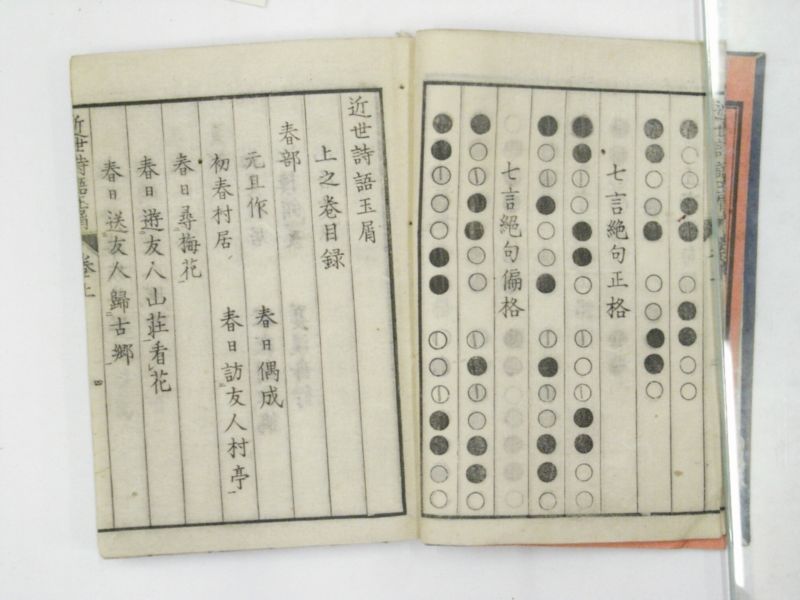 七言絕句正格
七言絕句偏格
近世詩語玉屑
上之卷目録
春部
元旦作
春日偶成
初春村居
春日訪友人村亭
春日尋梅花
春日遊友人山莊看花
春日送友人歸古郷
近世詩語玉屑
卷上